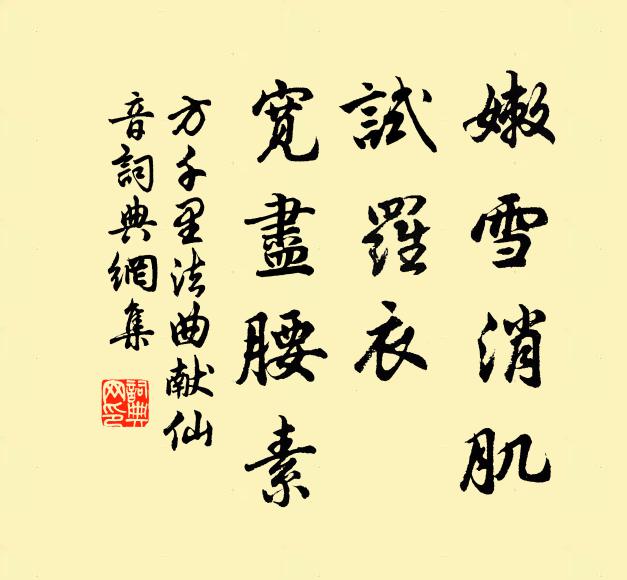 嫩雪消肌
試羅衣
寬盡腰素
方千里法曲献仙
音詞典網集
詞典网印